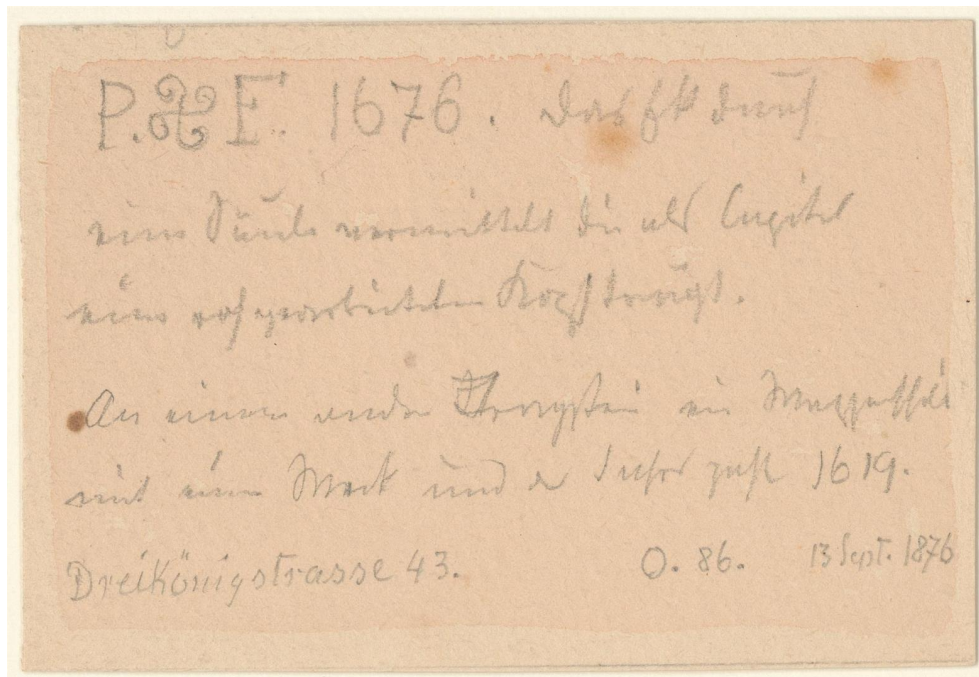 P. F. 1676. Das Eck durch
eine Säule vermittelt die als Capitel
eine rohgearbeiteten Kopf trägt.
An einem andern Tragstein ein Wappenschild
mit einem Weck und der Jahreszahl 1619.
Dreikönigstrasse 43. O. 86. 13 Sept. 1876